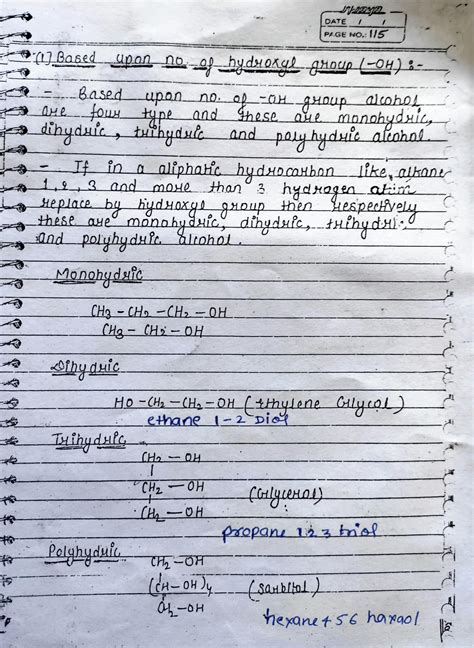 DATE / /
PAGE NO.: 115
(1) Based upon no. of hydroxyl group (-OH) :-
- Based upon no. of -OH group alcohol
are four type and these are monohydric,
dihydric, trihydric and polyhydric alcohol.
- If in a aliphatic hydrocarbon like, alkane
1, 2, 3 and more than 3 hydrogen atom
replace by hydroxyl group then respectively
these are monohydric, dihydric, trihydri-
and polyhydric alcohol.
Monohydric
CH3 - CH2 - CH2 - OH
CH3 - CH2 - OH
Dihydric
HO - CH2 - CH2 - OH (Ethylene Glycol)
ethane 1-2 Diol
Trihydric
CH2 - OH
CH2 - OH
CH2 - OH
(Glycerol)
propane 1 2 3 triol
Polyhydric
CH2 - OH
(CH - OH)4 (Sorbitol)
CH2 - OH